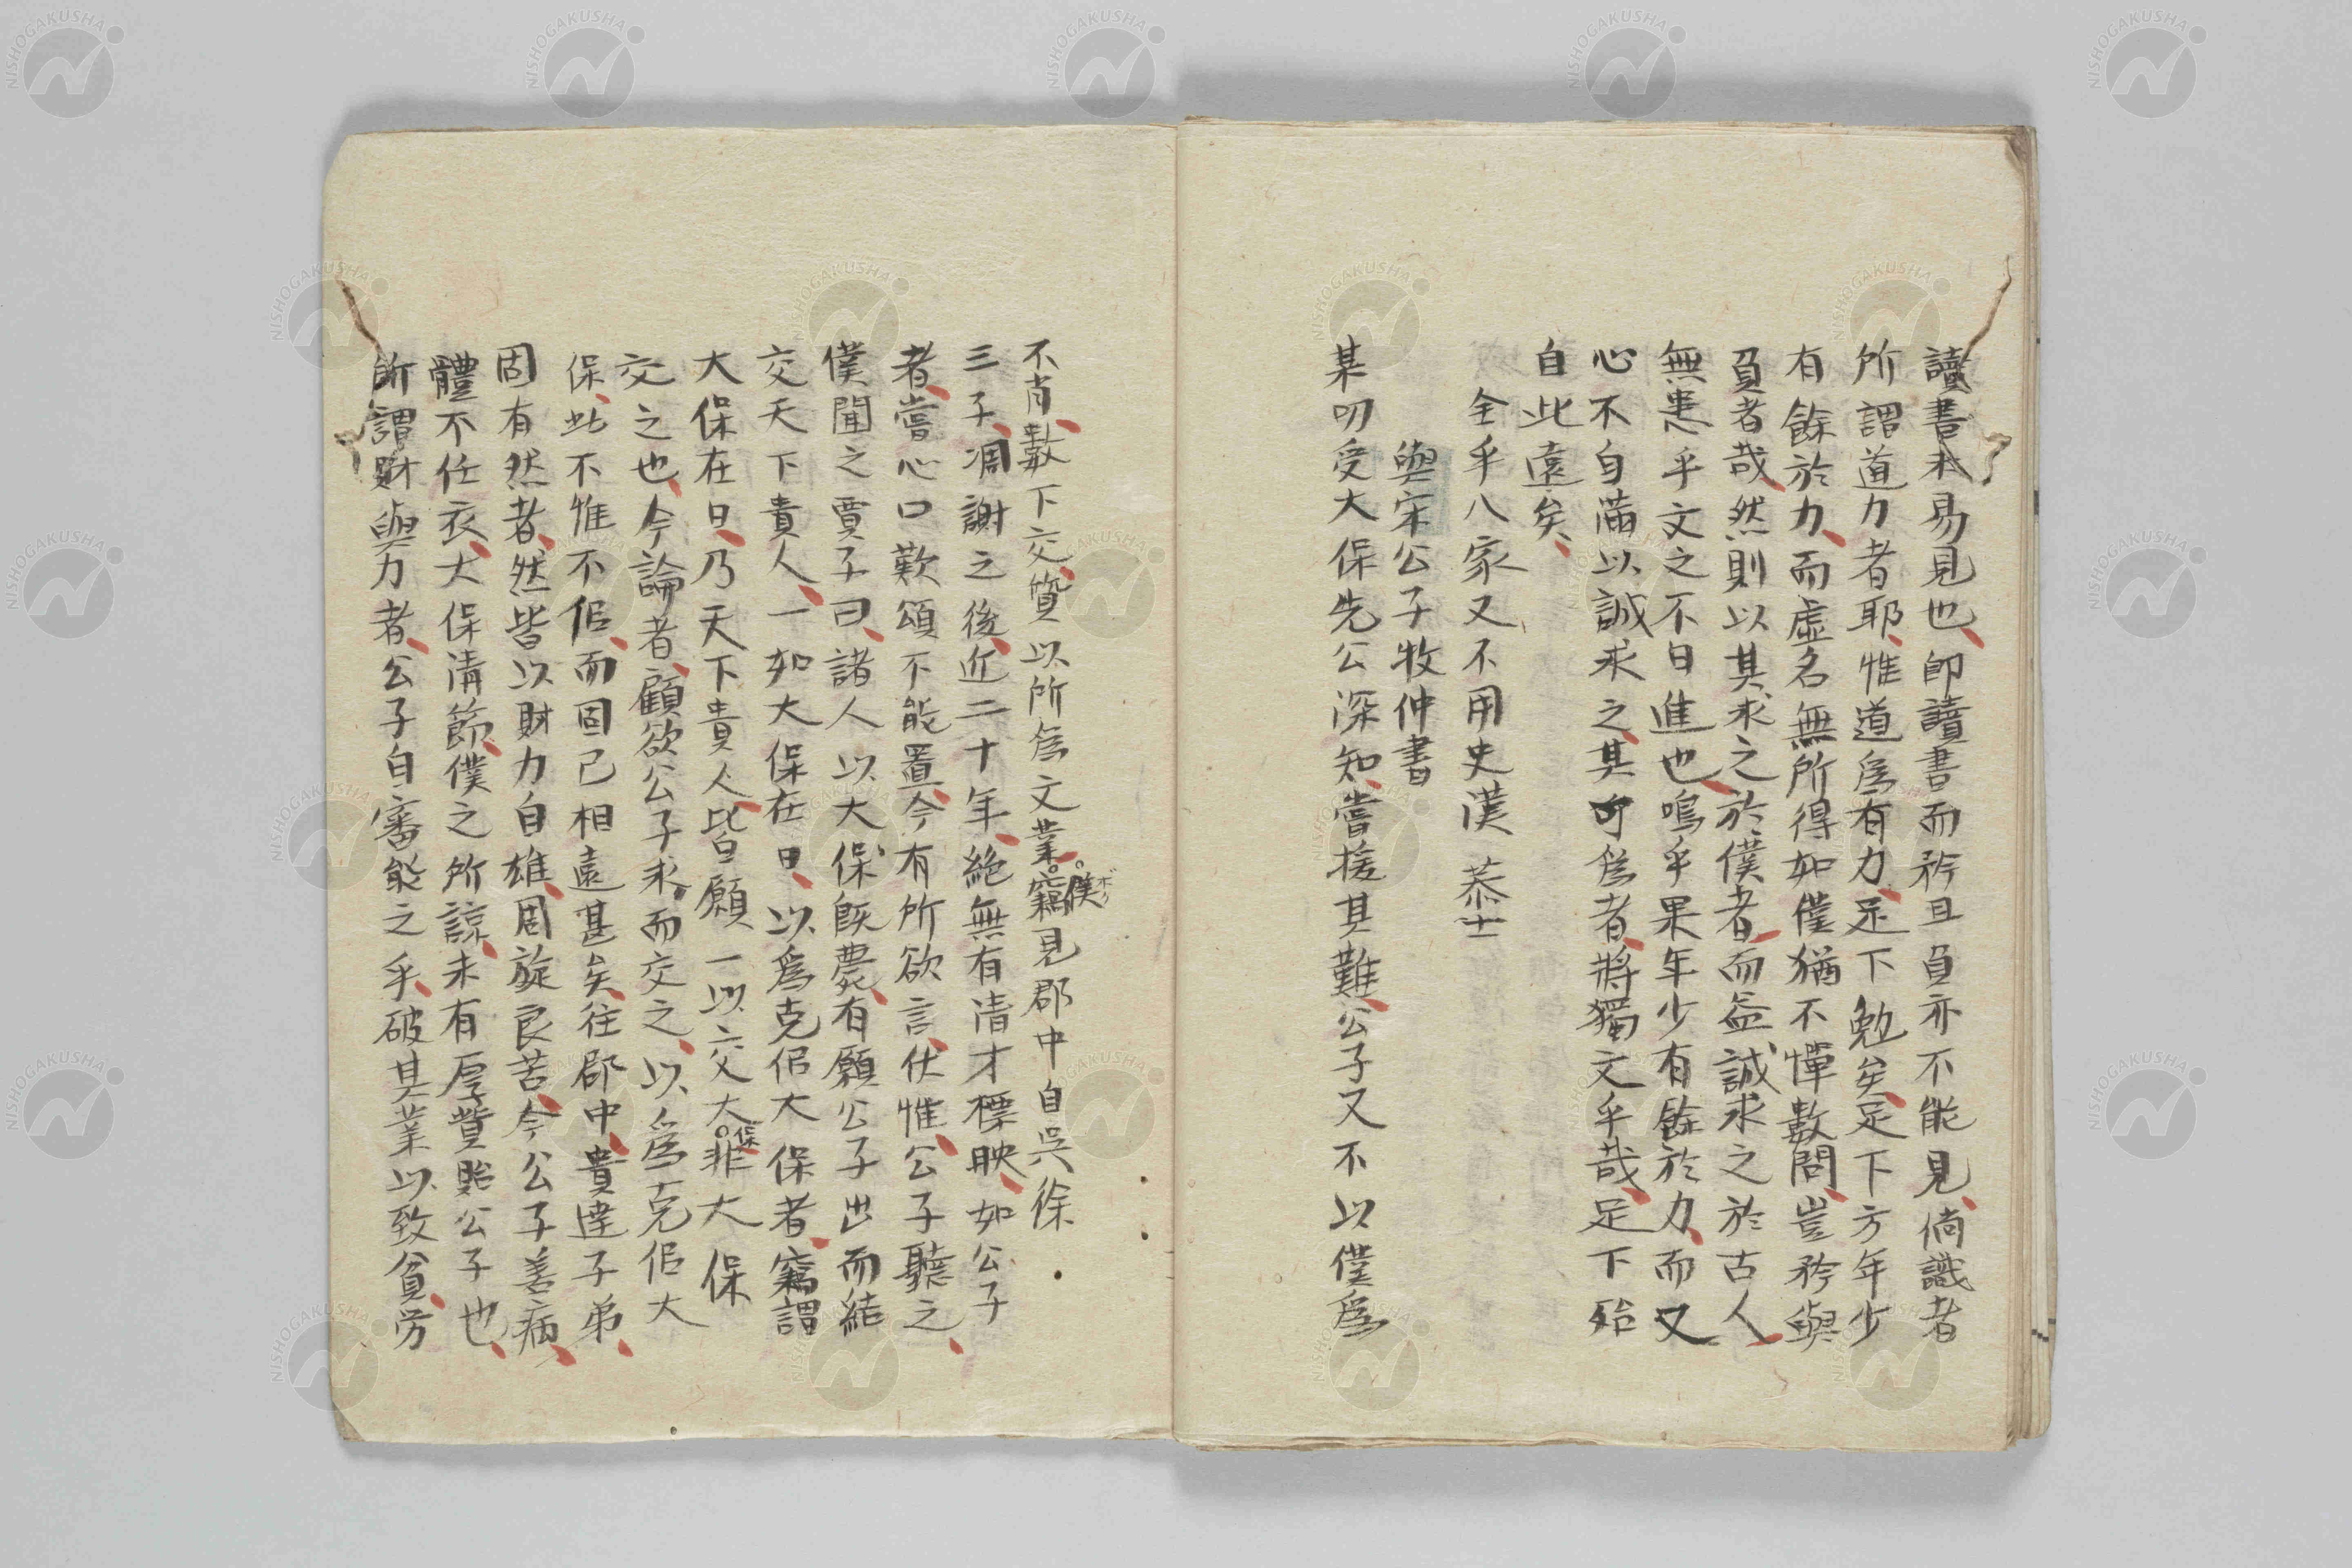 讀書未易見也即讀書而矜且負亦不能見倘識者
所謂道力者耶惟道爲有力足下勉矣足下方年少
有餘於力而虛名無所得如僕猶不憚數問豈矜與
負者哉然則以其求之於僕者而益誠求之於古人
無患乎文之不日進也嗚乎果年少有餘於力而又
心不自滿以誠求之其可爲者將獨文乎哉足下殆
自此遠矣
全乎八家又不用史漢 恭士
與宋公子牧仲書
某叨受大保先公深知嘗援其難公子又不以僕爲
不肖數下交質以所爲文業僕ボク竊見郡中自吳徐
三子凋謝之後近二十年絶無有清才標映如公子
者嘗心口歎頌不能置今有所欲言伏惟公子聽之
僕聞之賈子曰諸人以大保既薨有願公子出而結
交天下貴人一如大保在日以爲克佀大保者竊謂
大保在日乃天下貴人皆願一以交大保非大保
交之也今論者顧欲公子求而交之以爲克佀大
保此不惟不佀而固已相遠甚矣往郡中貴達子弟
固有然者然皆以財力自雄周旋良苦今公子善病
體不任衣大保清節僕之所諒未有厚貲貽公子也
所謂財與力者公子自審能之乎破其業以致貧勞
NISHOGAKUSHA